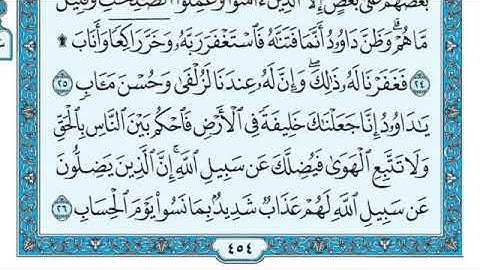 بَعْضُهُمْ عَلَىٰ بَعْضٍ إِلَّا الَّذِينَ ءَامَنُوا۟ وَعَمِلُوا۟ الصَّـٰلِحَـٰتِ وَقَلِيلٌ
مَّا هُمْ ۗ وَظَنَّ دَاوُۥدُ أَنَّمَا فَتَنَّـٰهُ فَاسْتَغْفَرَ رَبَّهُۥ وَخَرَّ رَاكِعًا وَأَنَابَ ۩
٢٤ فَغَفَرْنَا لَهُۥ ذَٰلِكَ ۖ وَإِنَّ لَهُۥ عِندَنَا لَزُلْفَىٰ وَحُسْنَ مَـَٔابٍ ٢٥
يَـٰدَاوُۥدُ إِنَّا جَعَلْنَـٰكَ خَلِيفَةً فِى الْأَرْضِ فَاحْكُم بَيْنَ النَّاسِ بِالْحَقِّ
وَلَا تَتَّبِعِ الْهَوَىٰ فَيُضِلَّكَ عَن سَبِيلِ اللَّهِ ۚ إِنَّ الَّذِينَ يَضِلُّونَ
عَن سَبِيلِ اللَّهِ لَهُمْ عَذَابٌ شَدِيدٌۢ بِمَا نَسُوا۟ يَوْمَ الْحِسَابِ ٢٦
٤٥٤